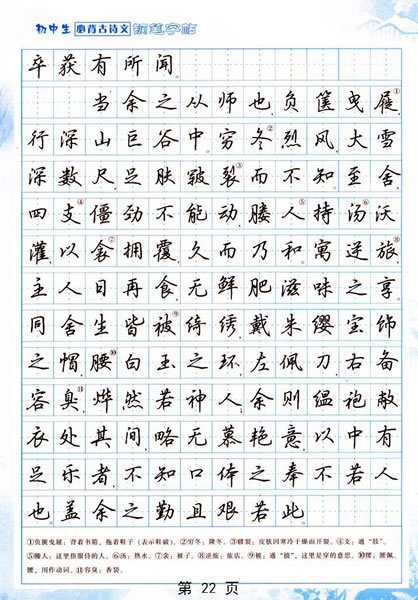 初中生 必背古诗文 钢笔字帖
卒获有所闻。
当余之从师也,负箧曳屣①
行深山巨谷中。穷冬②烈风,大雪
深数尺,足肤皲裂③而不知。至舍,
四支④僵劲不能动,媵人⑤持汤⑥沃
灌,以衾⑦拥覆,久而乃和。寓逆旅⑧,
主人日再食,无鲜肥滋味之享。
同舍生皆被⑨绮绣,戴朱缨宝饰
之帽,腰⑩白玉之环,左佩刀,右备
容臭⑪,烨然若神人;余则缊袍敝
衣处其间,略无慕艳意,以中有
足乐者,不知口体之奉不若人
也。盖余之勤且艰若此。
①负箧曳屣:背着书箱,拖着鞋子(表示鞋破)。②穷冬:隆冬。③皲裂:皮肤因寒冷干燥而开裂。④支:通“肢”。
⑤媵人:这里指服侍的人。⑥汤:热水。⑦衾:被子。⑧逆旅:旅店。⑨被:通“披”,这里是穿的意思。⑩腰:腰佩,
腰,用作动词。⑪容臭:香袋。
第 22 页